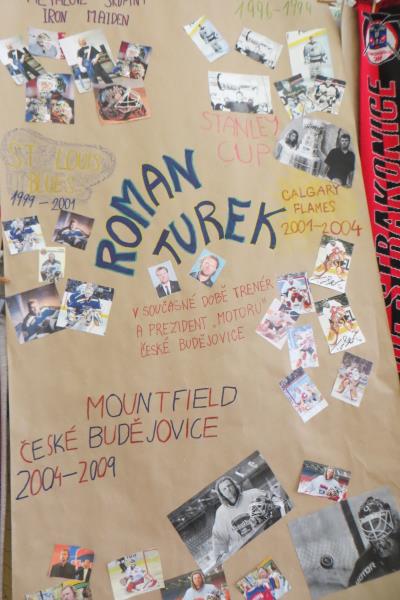 METALOVÉ SKUPINY
IRON MAIDEN
1996-1999
STANLEY
CUP
ST. LOUIS
BLUES
1999-2001
ROMAN
TUREK
CALGARY
FLAMES
2001-2004
V SOUČASNÉ DOBĚ TRENÉR
A PREZIDENT „MOTORU"
ČESKÉ BUDĚJOVICE
MOUNTFIELD
ČESKÉ BUDĚJOVICE
2004-2009
STRAKONICE